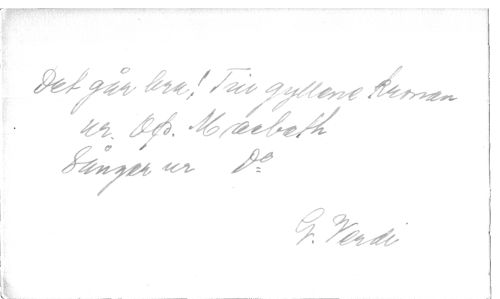 Det går bra! Trio gyllene kronan
ur. Op. Macbeth
Sånger ur Do
G. Verdi